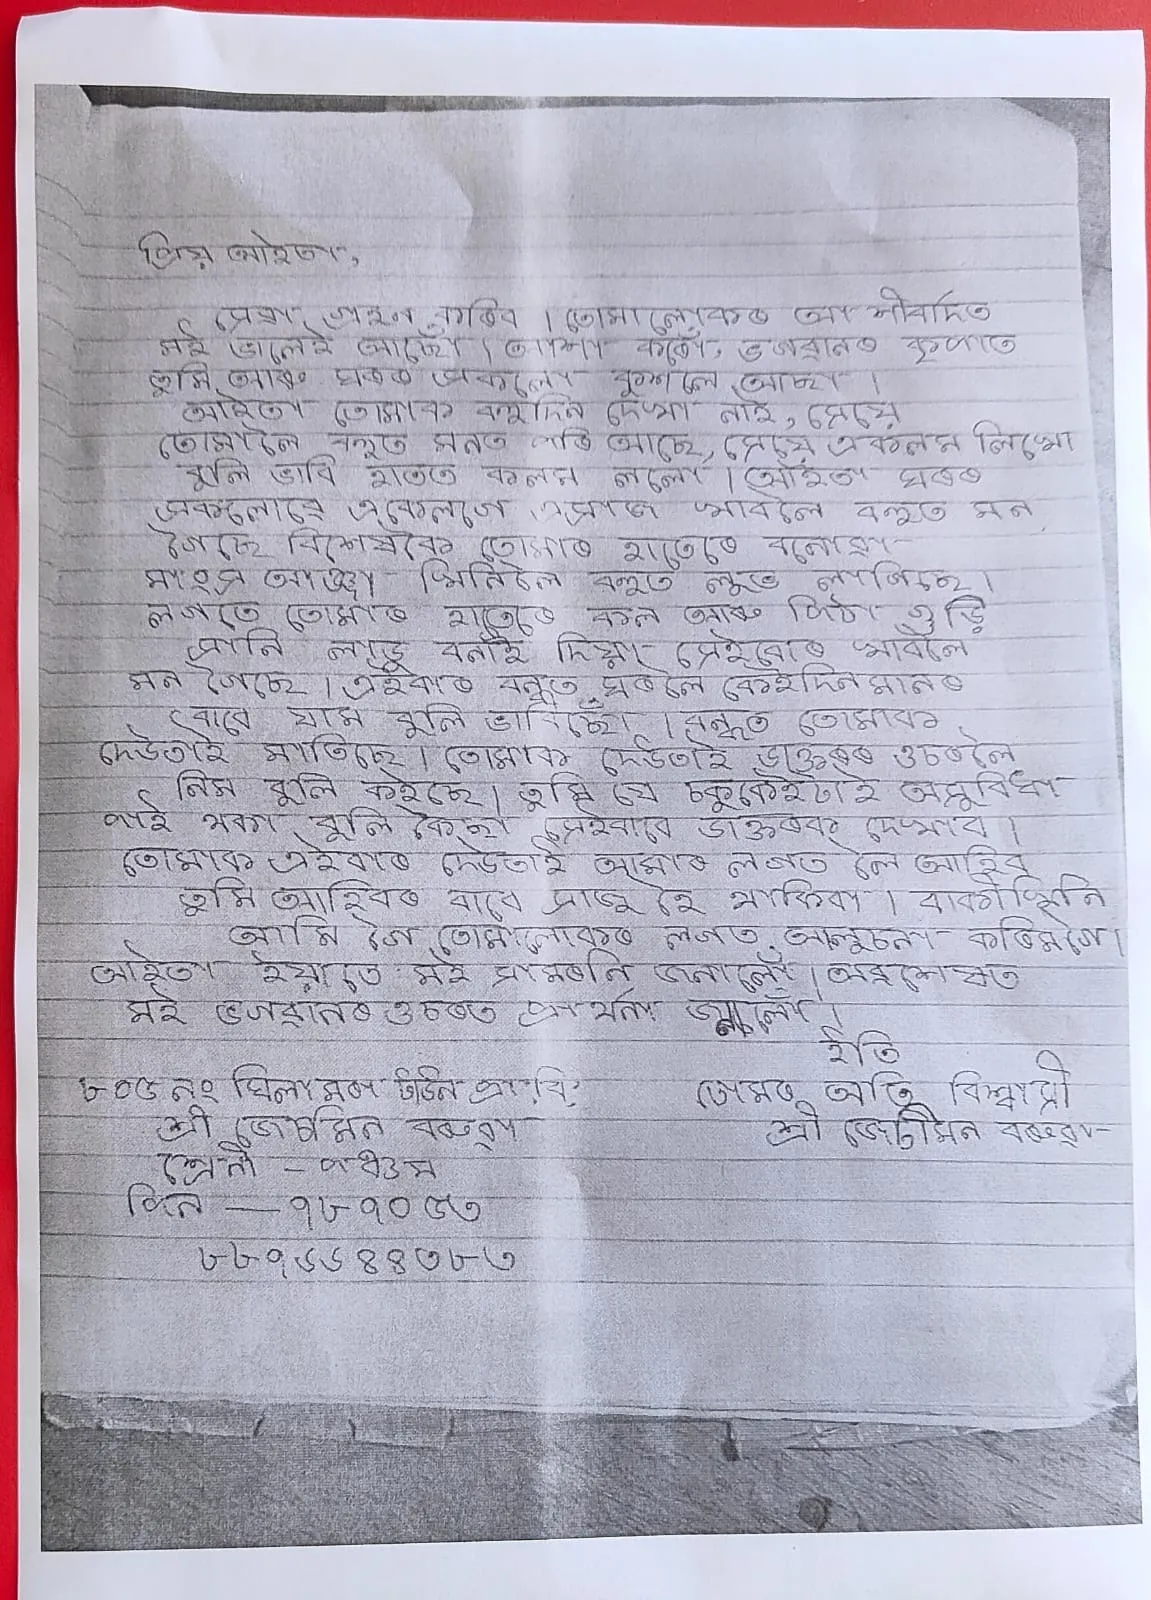 প্ৰিয় আইতা,
সেৱা গ্ৰহন কৰিব । তোমালোকৰ আশীবাদত
মই ভালেই আছোঁ । আশা কৰোঁ, ভগৱানৰ কৃপাত
তুমি আৰু ঘৰৰ সকলো কুশলে আছা ।
আইতা তোমাক বহুদিন দেখা নাই, সেয়ে
তোমালৈ বহুত মনত পৰি আছে, সেয়ে একলম লিখো
বুলি ভাবি হাতত কলম ললো । আইতা ঘৰৰ
সকলোৱে একেলগে এসাজ খাবলৈ বহুত মন
গৈছে বিশেষকৈ তোমাৰ হাতেৰে বনোৱা
মাংস আঞ্জা খিনিলৈ বহুত লুভ লাগিছে ।
লগতে তোমাৰ হাতেৰে কল আৰু পিঠা গুড়ি
সানি লাডু বনাই দিয়া সেইবোৰ খাবলৈ
মন গৈছে । এইবাৰ বন্ধত ঘৰলৈ কেইদিনমানৰ
বাবে যাম বুলি ভাবিছোঁ । বন্ধত তোমাক
দেউতাই মাতিছে । তোমাক দেউতাই ডাক্তৰৰ ওচৰলৈ
নিম বুলি কইছে । তুমি যে চকুকেইটাই অসুবিধা
পাই থকা বুলি কৈছা সেইবাবে ডাক্তৰক দেখাব ।
তোমাক এইবাৰ দেউতাই আমাৰ লগত লৈ আহিব
তুমি আহিবৰ বাবে সাজু হৈ থাকিবা । বাকী খিনি
আমি গৈ তোমালোকৰ লগত আলুচনা কৰিমগৈ ।
আইতা ইয়াতে মই সামৰনি জনালোঁ । অৱশেষত
মই ভগৱানৰ ওচৰত প্ৰাৰ্থনা জনালোঁ ।
ইতি
৮০৫ নং ঘিলামৰা টাউন প্ৰা: বি: তোমৰ অতি বিশ্বাসী
শ্ৰী জেচমিন বৰুৱা শ্ৰী জেচমিন বৰুৱা
শ্ৰেনী - পঞ্চম
পিন — ৭৮৭০৫৩
৮৮৭৬৬৪৪৩৮৩